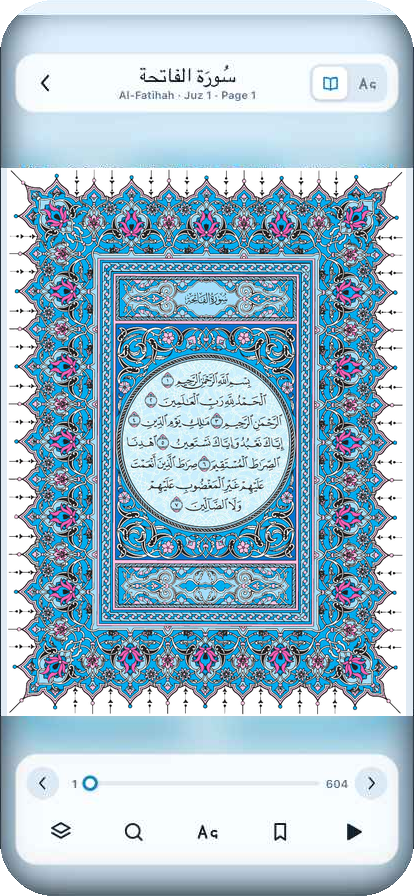 سُورَة الفاتحة
Al-Fatihah · Juz 1 · Page 1
Aء
سُورَةُ الفَاتِحَةِ
بِسْمِ اللَّهِ الرَّحْمَٰنِ الرَّحِيمِ ١
الْحَمْدُ لِلَّهِ رَبِّ الْعَالَمِينَ ٢
الرَّحْمَٰنِ الرَّحِيمِ ٣ مَالِكِ يَوْمِ الدِّينِ ٤
إِيَّاكَ نَعْبُدُ وَإِيَّاكَ نَسْتَعِينُ ٥ اهْدِنَا
الصِّرَاطَ الْمُسْتَقِيمَ ٦ صِرَاطَ الَّذِينَ أَنْعَمْتَ
عَلَيْهِمْ غَيْرِ الْمَغْضُوبِ عَلَيْهِمْ
وَلَا الضَّالِّينَ ٧
1 604
Aء